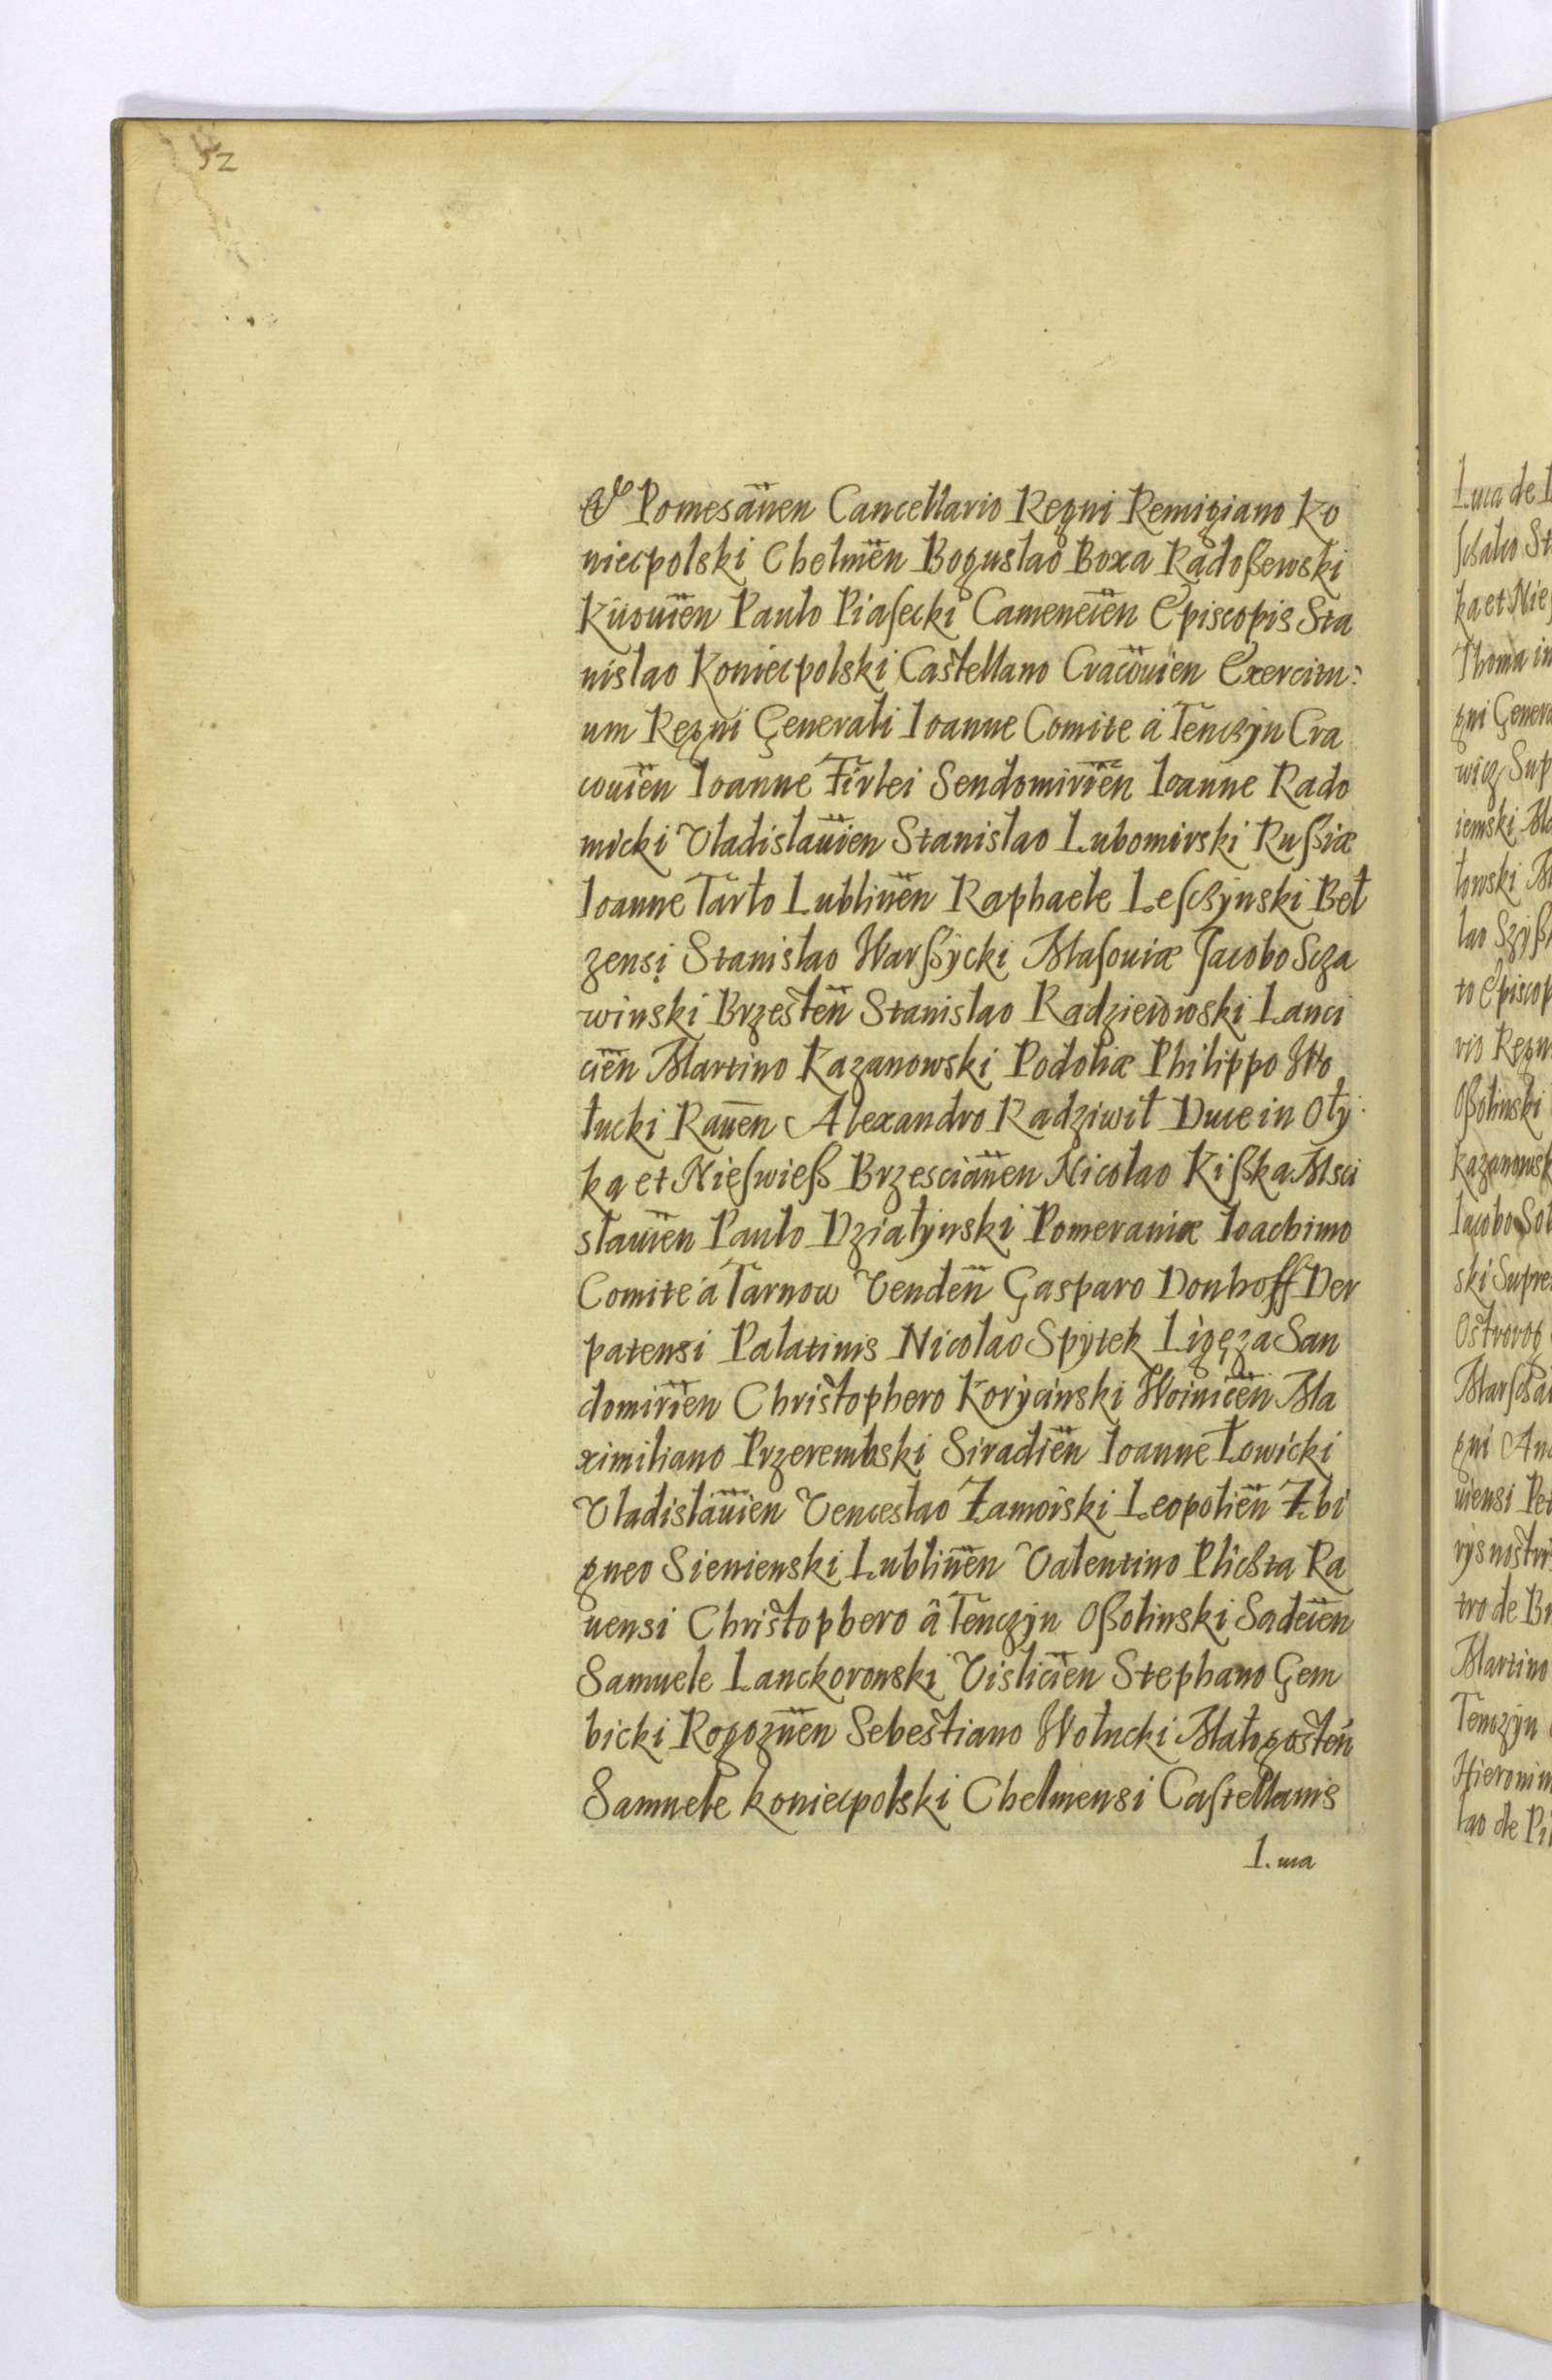 52
& Pomesanen Cancellario Regni Remigiano Ko
niecpolski Chelmen Boguslao Boxa Radoßewski
Kiiouien Paulo Piasecki Camenecen Episcopis Sta
nislao Koniecpolski Castellano Cracouien Exercitu:
um Regni Generali Ioanne Comite á Tenczyn Cra
couien Ioanne Firlei Sendomirien Ioanne Rado
micki Vladislauien Stanislao Lubomirski Rußiæ
Ioanne Tarło Lublinen Raphaele Leschynski Beł
zensi Stanislao Warßycki Masouiæ Jacobo Scza
winski Brzesten Stanislao Radzieiowski Lanci
cien Martino Kazanowski Podoliæ Philippo Wo
łucki Rauen Alexandro Radziwił Duce in Oły:
ka et Nieswieß Brzescianen Nicolao Kißka Msci
slauien Paulo Działynski Pomeraniæ Ioachimo
Comite á Tarnow Venden Gasparo Donhoff Der
patensi Palatinis Nicolao Spytek Ligęza San
domirien Christophero Korycinski Woinicen Ma
ximiliano Przerembski Siradien Ioanne Łowicki
Vladislauien Venceslao Zamoiski Leopolien Zbi
gneo Sienienski Lublinen Valentino Plichta Ra
uensi Christophero â Tenczyn Oßolinski Sadecen
Samuele Lanckoronski Vislicien Stephano Gem
bicki Rogoznen Sebestiano Wołucki Małogosten
Samuele Koniecpolski Chelmensi Castellanis
Luca de
Thoma in
kazanowsk
Ostrorog
tro de Br
Martino
Tenczyn
Hieronim
lao de Pi